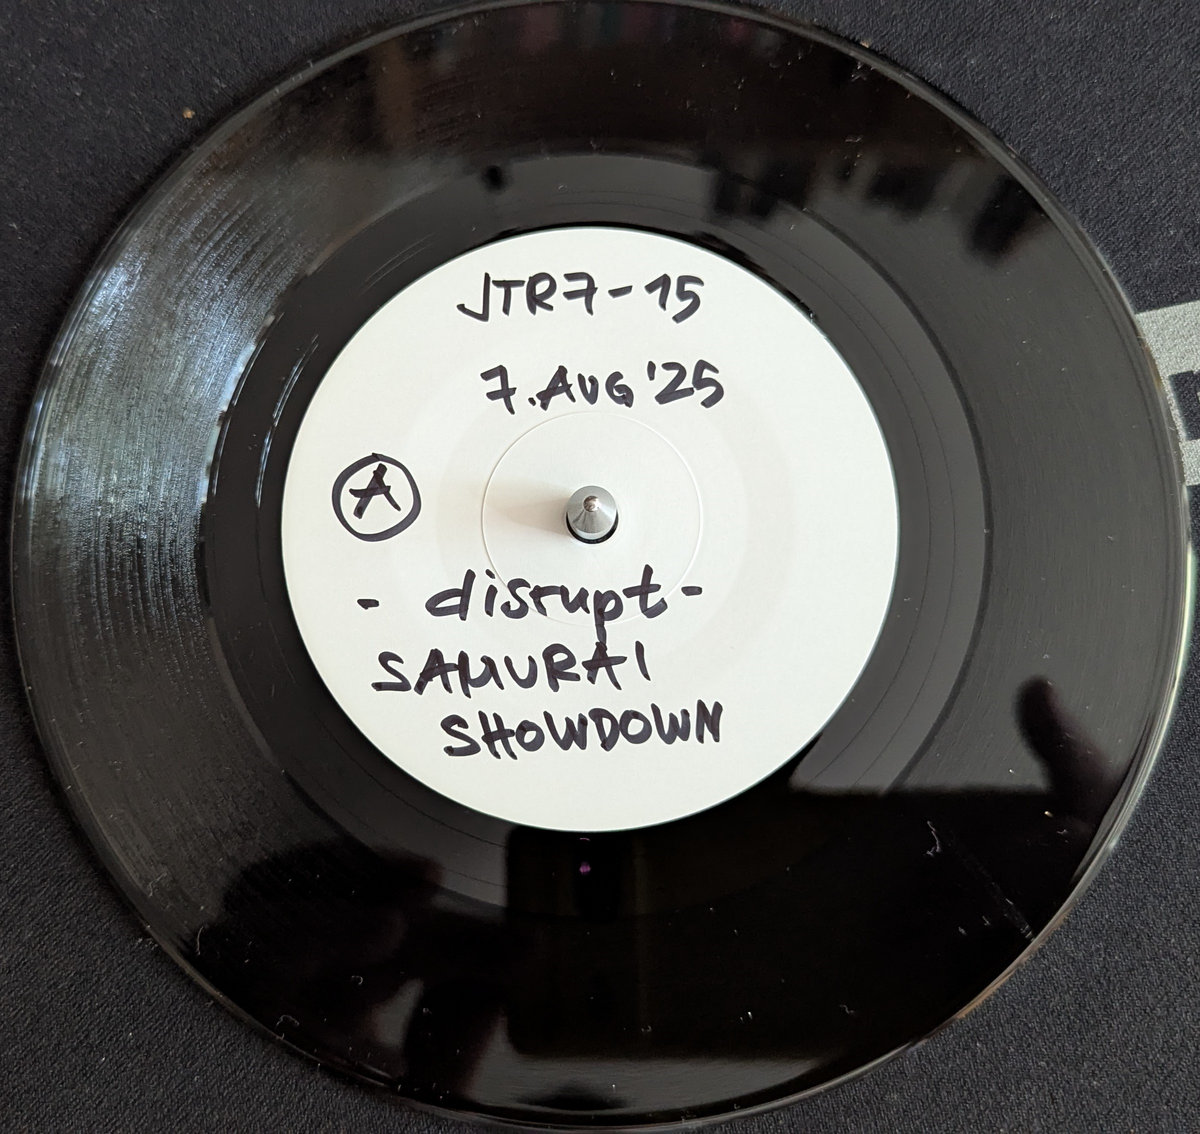 JTR7-15
7.AUG '25
A
- disrupt -
SAMURAI
SHOWDOWN